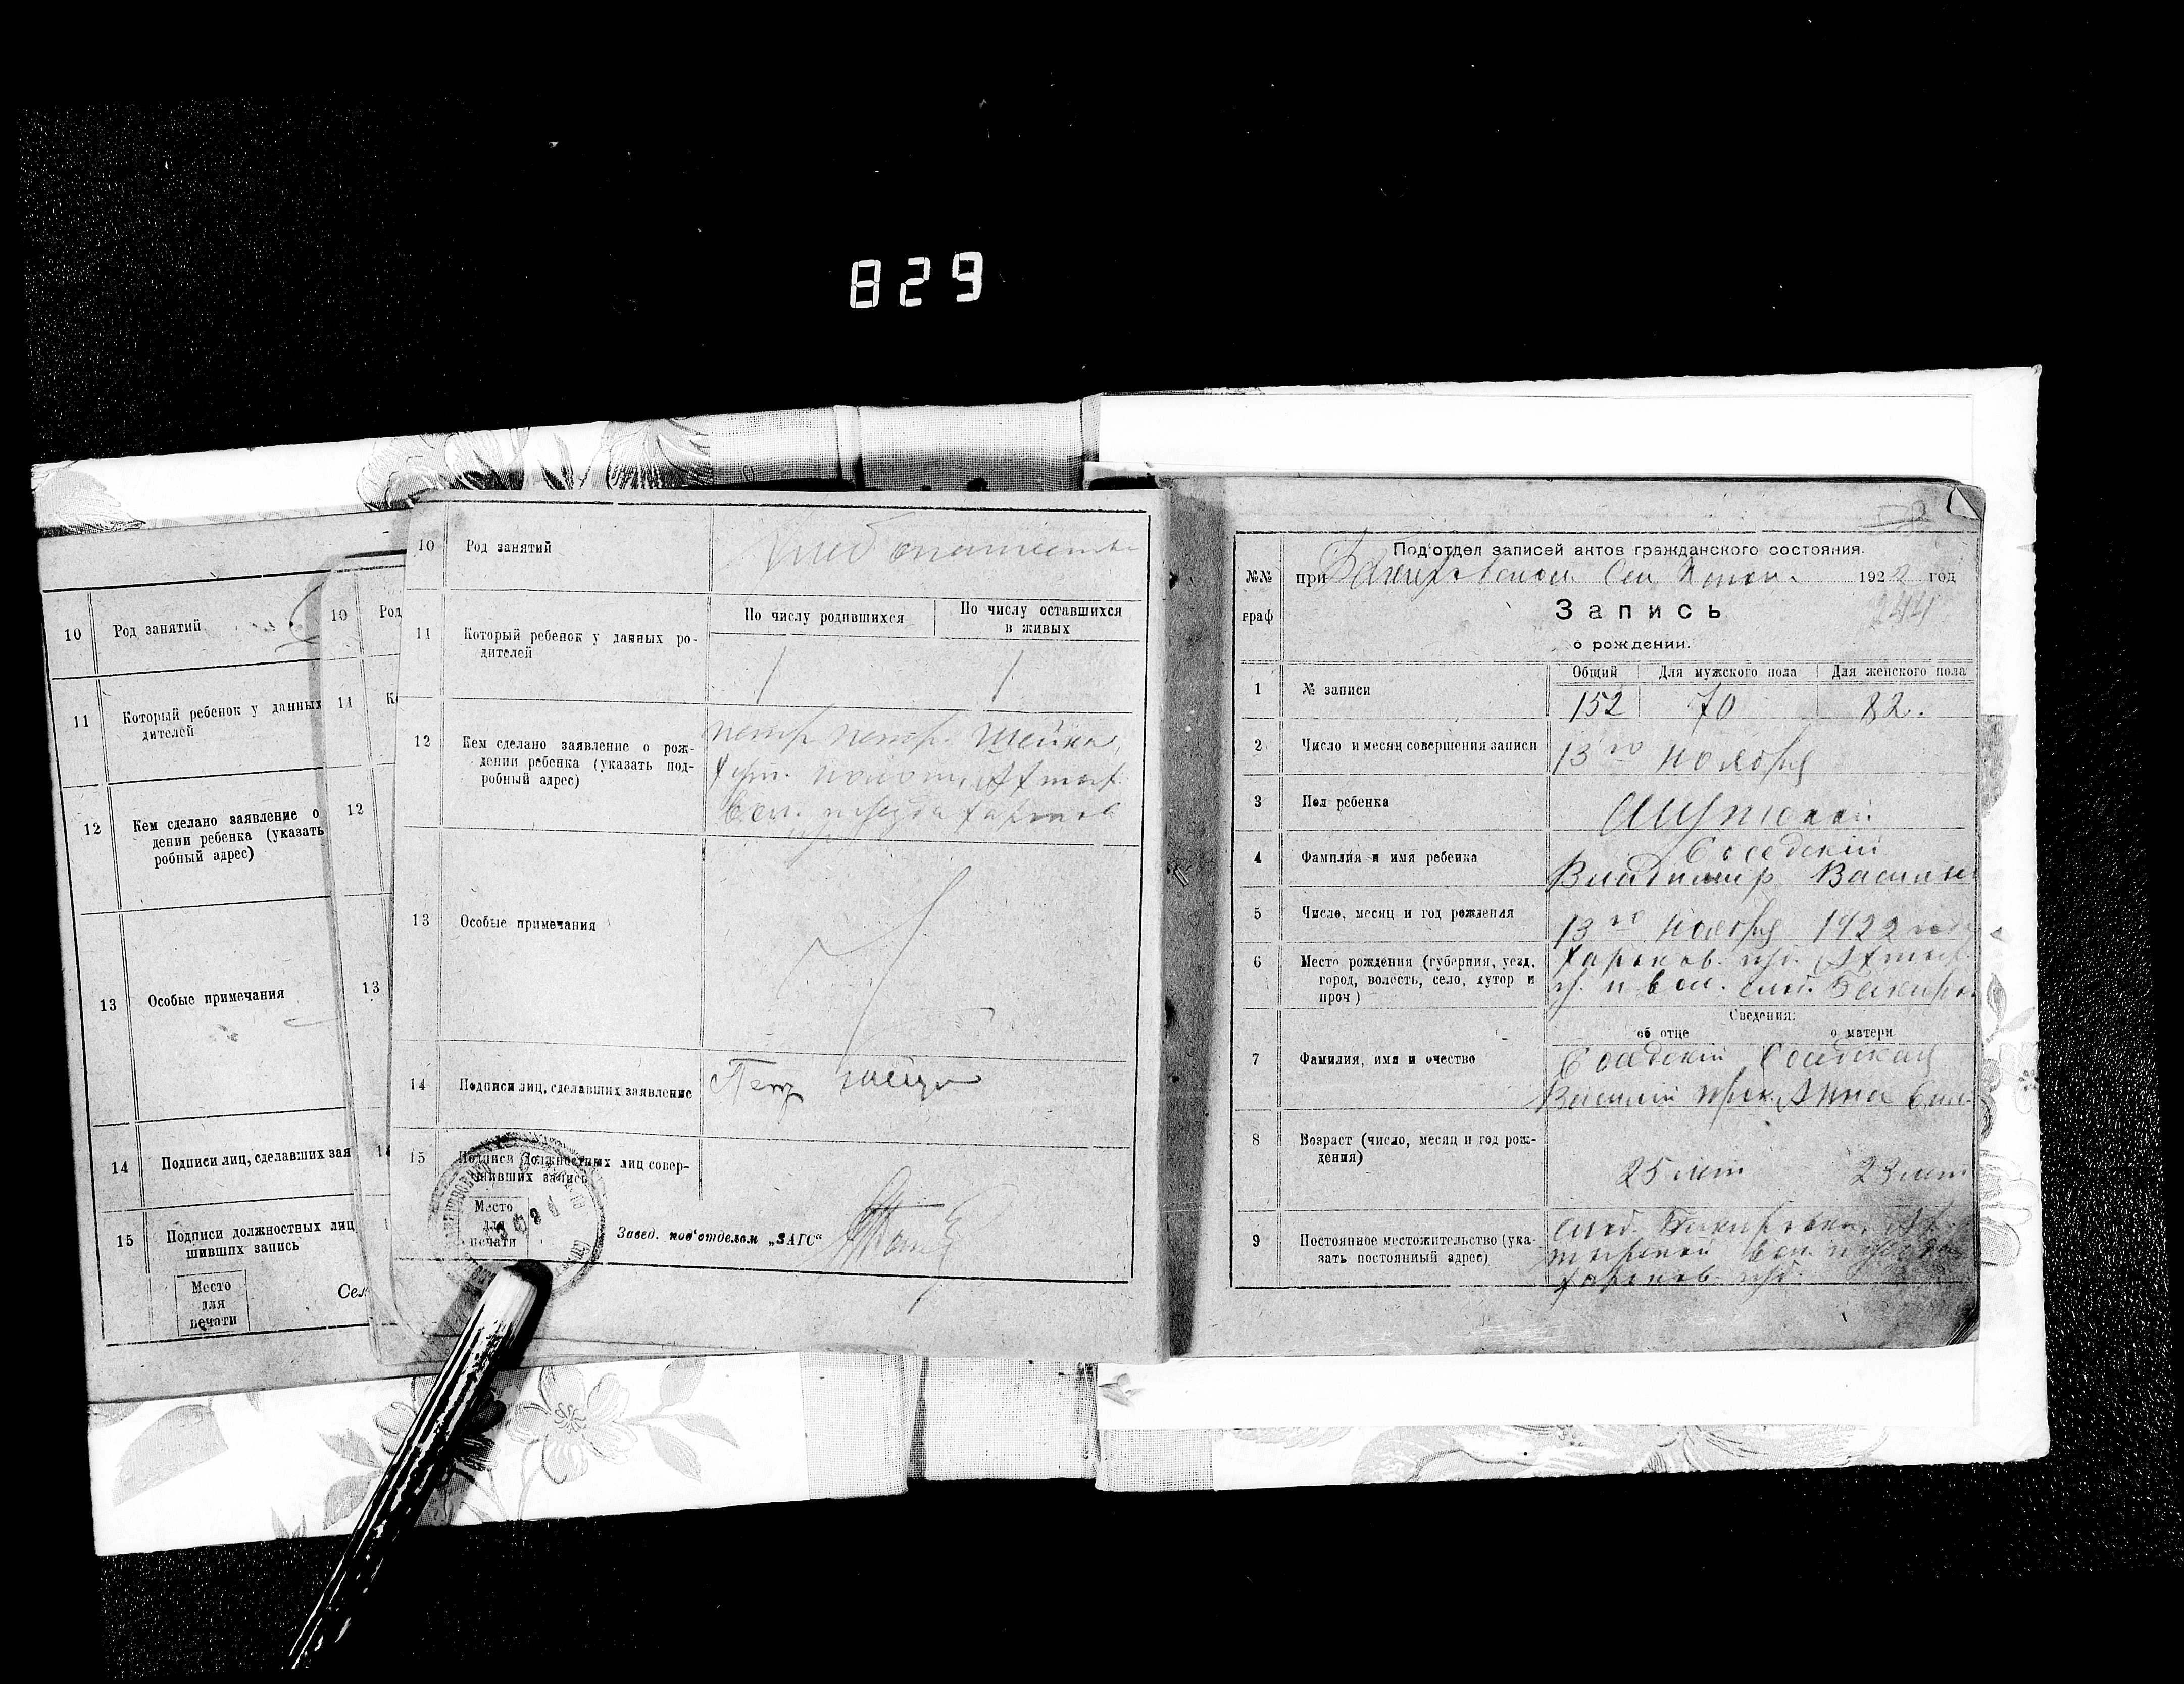 829
10
Род занятий
11
Который ребенок у данных
дителей
12
Кем сделано заявление о
дении ребенка (указать
робный адрес)
13
Особые примечания
14
Подписи лиц, сделавших зая
15
Подписи должностных лиц
шивших запись
Место
для
печати
Сек
10
Род
11
К
12
13
10
Род занятий
11
Который ребенок у данных ро-
дителей
По числу родившихся
По числу оставшихся
в живых
1
1
12
Кем сделано заявление о рож-
дении ребенка (указать под-
робный адрес)
петр петр. Шейка
13
Особые примечания
14
Подписи лиц, сделавших заявление
Петр
15
Подписи должностных лиц совер-
шивших запись
Место
для
печати
Завед. под'отделом „ЗАГС“
№№
граф
Под'отдел записей актов гражданского состояния.
при 1922 год
Запись
244
о рождении.
1
№ записи
Общий
Для мужского пола
Для женского пола
152
70
82.
2
Число и месяц совершения записи
13го ноября
3
Пол ребенка
Мужской
4
Фамилия и имя ребенка
Соседский
Владимир Васили
5
Число, месяц и год рождения
13го ноября 1922 года
6
Место рождения (губерния, уезд,
город, волость, село, хутор и
проч)
Харьков. губ. Ахтыр.
у. и вол. слоб. Бакиров.
Сведения:
об отце
о матери
7
Фамилия, имя и очество
Соседский Соседская
Василий Прок. Анна
8
Возраст (число, месяц и год рож-
дения)
25 лет
23 лет
9
Постоянное местожительство (ука-
зать постоянный адрес)
слоб. Бакировка, Ах-
тырской вол. и уезда
Харьков. губ.